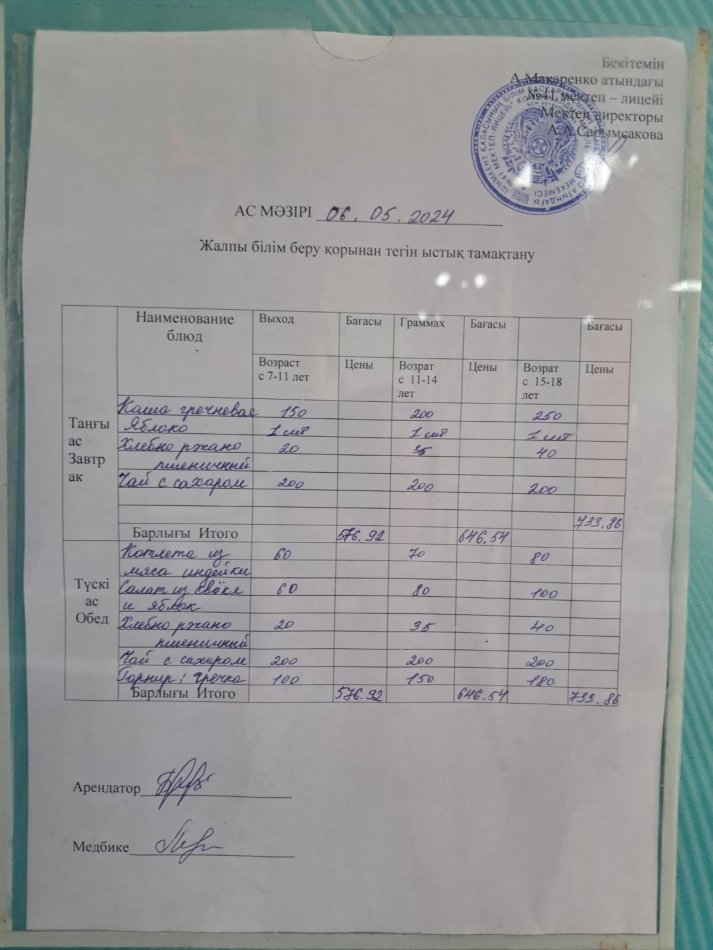 Бекітемін
А.Макаренко атындағы
№41 мектеп – лицейі
Мектеп директоры
А.А.Сарымсакова
АС МӘЗІРІ 06.05.2024
Жалпы білім беру қорынан тегін ыстық тамақтану
Наименование блюд Выход Бағасы Граммах Бағасы Бағасы
Возраст с 7-11 лет Цены Возрат с 11-14 лет Цены Возрат с 15-18 лет Цены
Таңғы ас Завтрак
Каша гречневая 150 200 250
Яблоко 1 шт 1 шт 1 шт
Хлебно ржано 20 35 40
пшеничный
Чай с сахаром 200 200 200
733,86
Барлығы Итого 576.92 646,54
Түскі ас Обед
Котлета из 60 70 80
мяса индейки
Салат из свёкл 60 80 100
и яблок
Хлебно ржано 20 35 40
пшеничный
Чай с сахаром 200 200 200
Гарнир: гречка 100 150 180
Барлығы Итого 576.92 646.54 733.86
Арендатор
Медбике